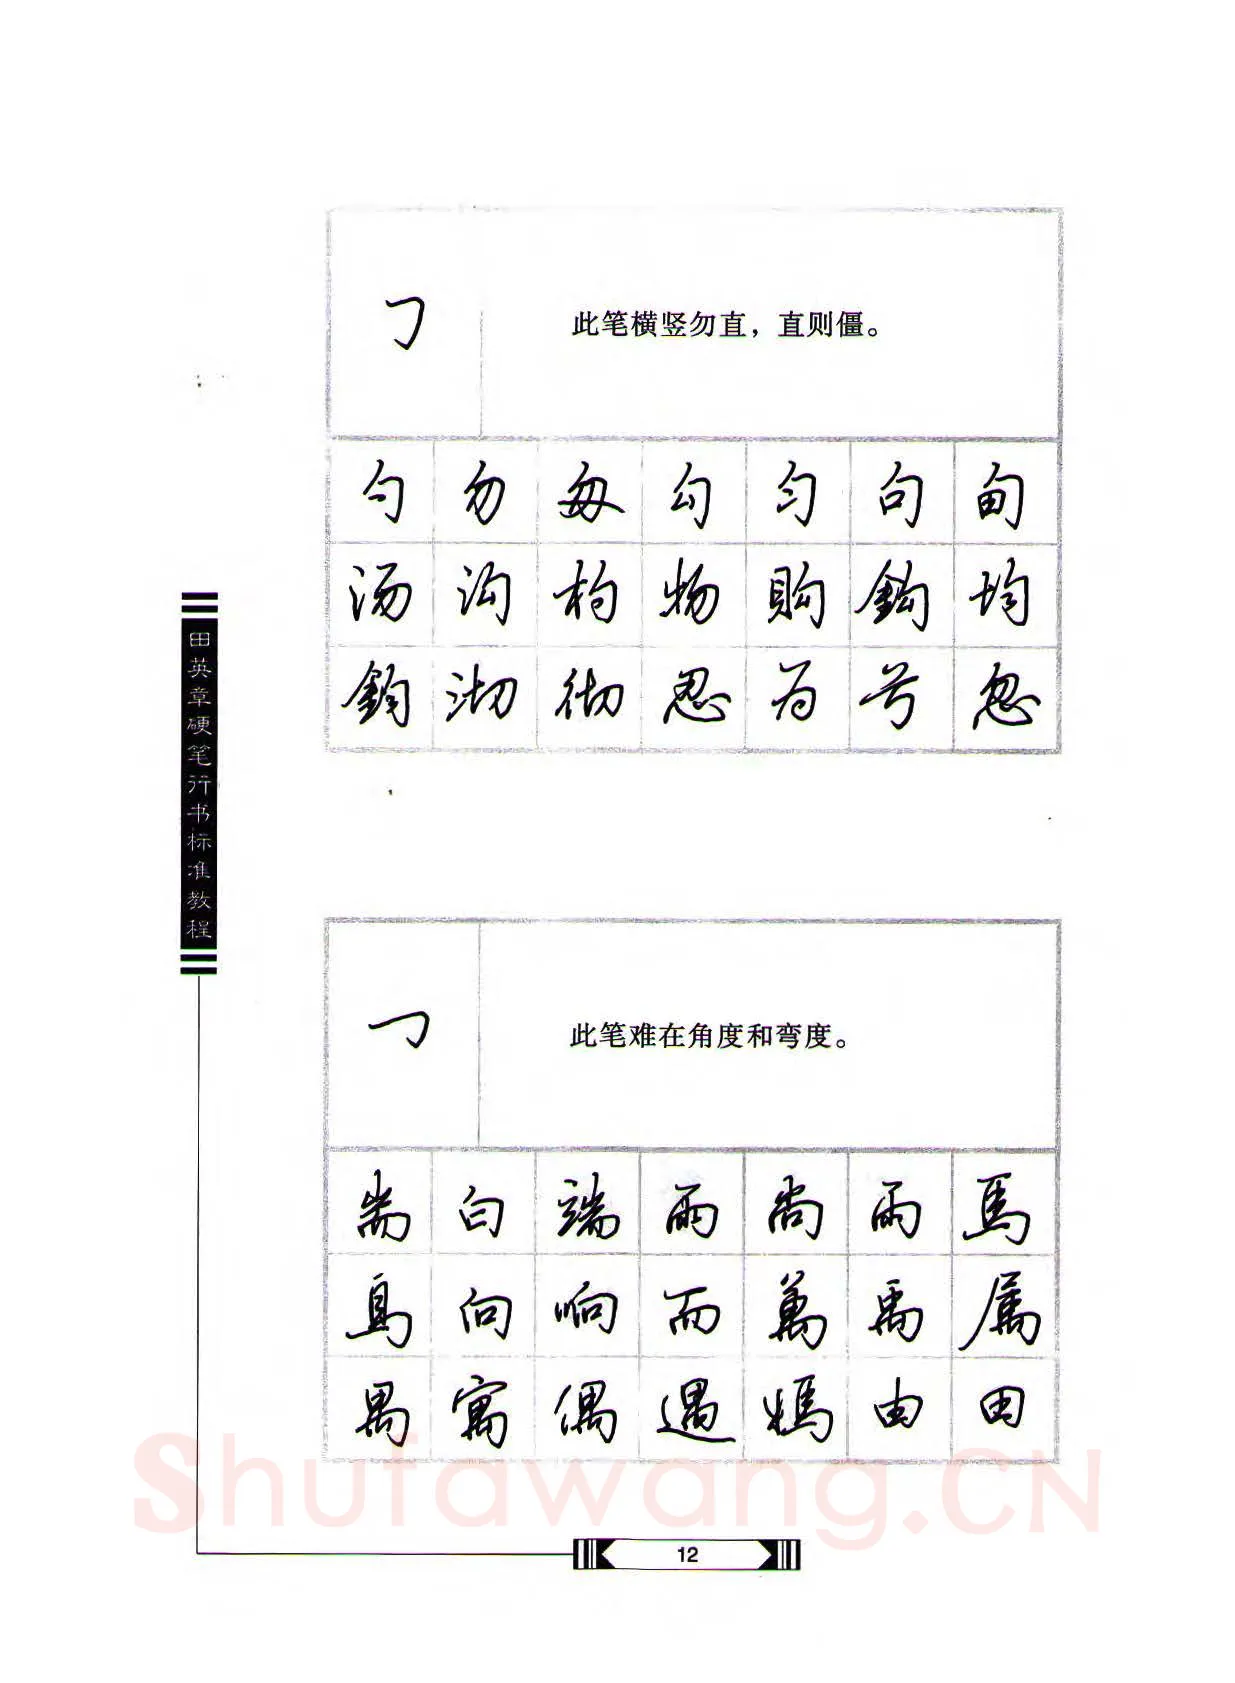 此笔横竖勿直，直则僵。
勺 勿 每 勾 匀 句 甸
汤 沟 构 物 购 鈎 均
鈞 沏 彻 忍 为 号 忽
田英章硬笔行书标准教程
此笔难在角度和弯度。
耑 白 端 雨 尚 雨 馬
島 向 响 而 萬 禹 属
禺 寓 偶 遇 媽 由 田
12
Shufawang.CN